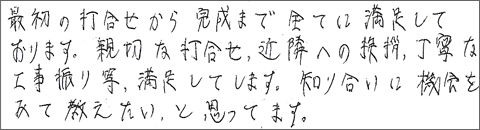 最初の打合せから完成まで全てに満足して
おります。親切な打合せ,近隣への挨拶,丁寧な
工事振り等,満足してします。知り合いに機会を
みて教えたい,と思ってます。